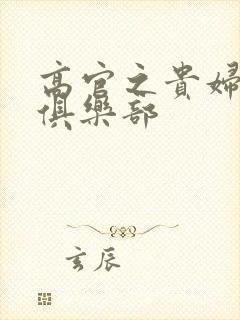 高官之貴婦
俱樂部
玄辰